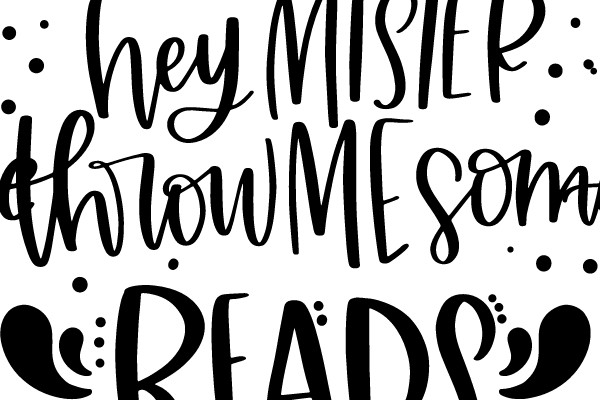 hey MISTER
throw ME some
BEADS